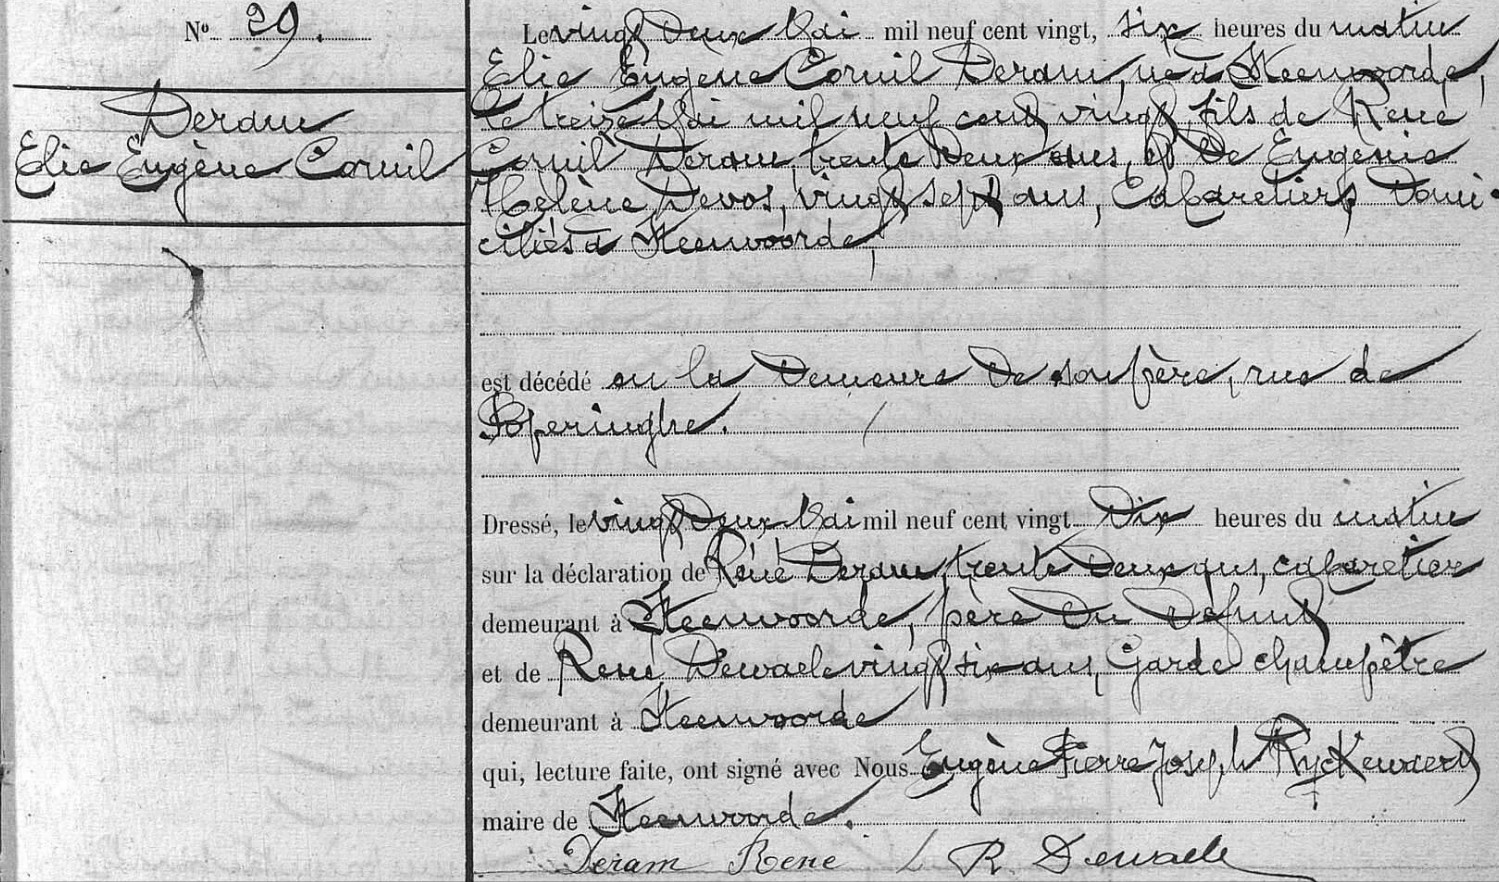 N° 29.
Deram
Elie Eugène Cornil
Le vingt Deux Mai mil neuf cent vingt, six heures du matin
Elie Eugène Cornil Deram, né à Steenvoorde,
le treize Mai mil neuf cent vingt, fils de René
Cornil Deram, trente Deux ans, et De Eugénie
Hélène Devos, vingt sept ans, Cabaretiers, Domi-
ciliés à Steenvoorde,
est décédé en la Demeure De son père, rue de
Poperinghe.
Dressé, le vingt Deux Mai mil neuf cent vingt Dix heures du matin
sur la déclaration de René Deram, trente Deux ans, cabaretier
demeurant à Steenvoorde, père Du Défunt
et de René Dewaele vingt six ans, Garde champêtre
demeurant à Steenvoorde
qui, lecture faite, ont signé avec Nous Eugène Pierre Joseph Ryckewaert
maire de Steenvoorde.
Deram Rene R. Dewaele